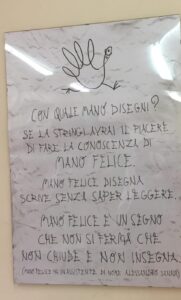 CON QUALE MANO DISEGNI?
SE LA STRINGI AVRAI IL PIACERE
DI FARE LA CONOSCENZA DI
MANO FELICE.
MANO FELICE DISEGNA
SCRIVE SENZA SAPER LEGGERE.
MANO FELICE È UN SEGNO
CHE NON SI FERMA CHE
NON CHIUDE E NON INSEGNA
(MANO FELICE HA IN ASSISTENZA DI ALESSANDRO